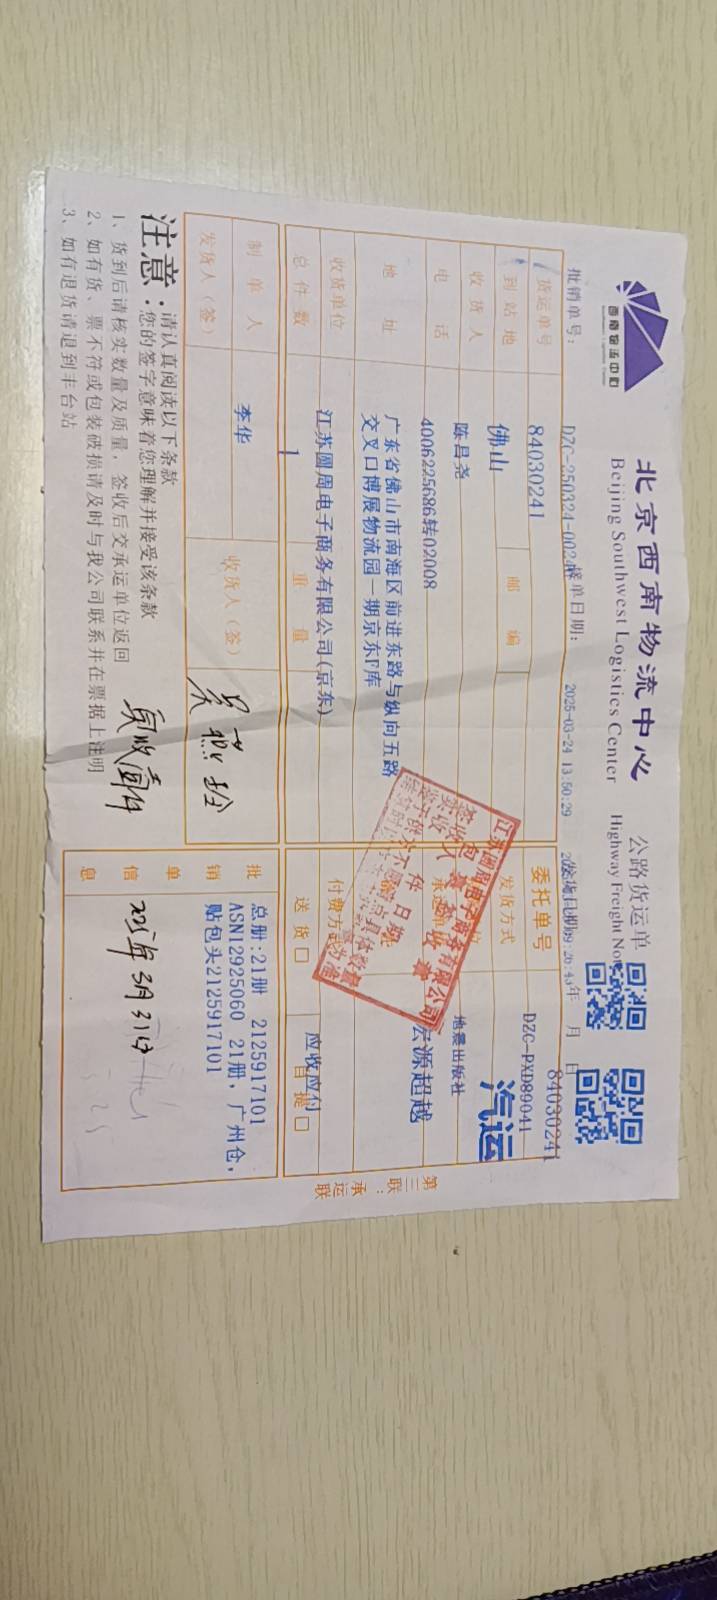 西南物流中心
北京西南物流中心 公路货运单
Beijing Southwest Logistics Center Highway Freight
84030241
批销单号: DZC-250324-002 接单日期: 2025-03-24 13:50:29 发货日期: 年 月 日
货运单号 84030241 委托单号 DZC-PXD89041
到站地 佛山 邮编 发货方式 汽运
收货人 陈昌尧 地震出版社
电话 4006225686转02008 宏源超越
地址 广东省佛山市南海区前进东路与纵向五路
交叉口博展物流园一期京东F库
收货单位 江苏圆周电子商务有限公司(京东) 付费方式 应收应付
总件数 1 重量 送货□ 自提□
制单人 李华 收货人(签)
发货人(签)
批销单信息
总册:21册 2125917101
ASN12925060 21册, 广州仓,
贴包头2125917101
2025年3月31日
注意:
请认真阅读以下条款
您的签字意味着您理解并接受该条款
1、货到后请核实数量及质量,签收后交承运单位返回
2、如有货、票不符或包装破损请及时与我公司联系并在票据上注明
3、如有退货请退到丰台站
实收壹件
第三联:承运联
江苏圆周电子商务有限公司